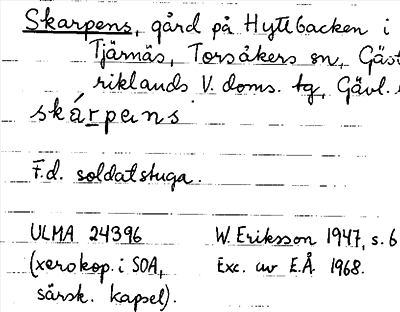 Skarpens, gård på Hyttbacken i
Tjärnäs, Torsåkers sn, Gäst
riklands V. doms. tg, Gävl.
skárpens
F.d. soldatstuga.
ULMA 24396 W. Eriksson 1947, s. 6
(xerokop. i SOA, Exc. av E.Å. 1968.
särsk. kapsel).